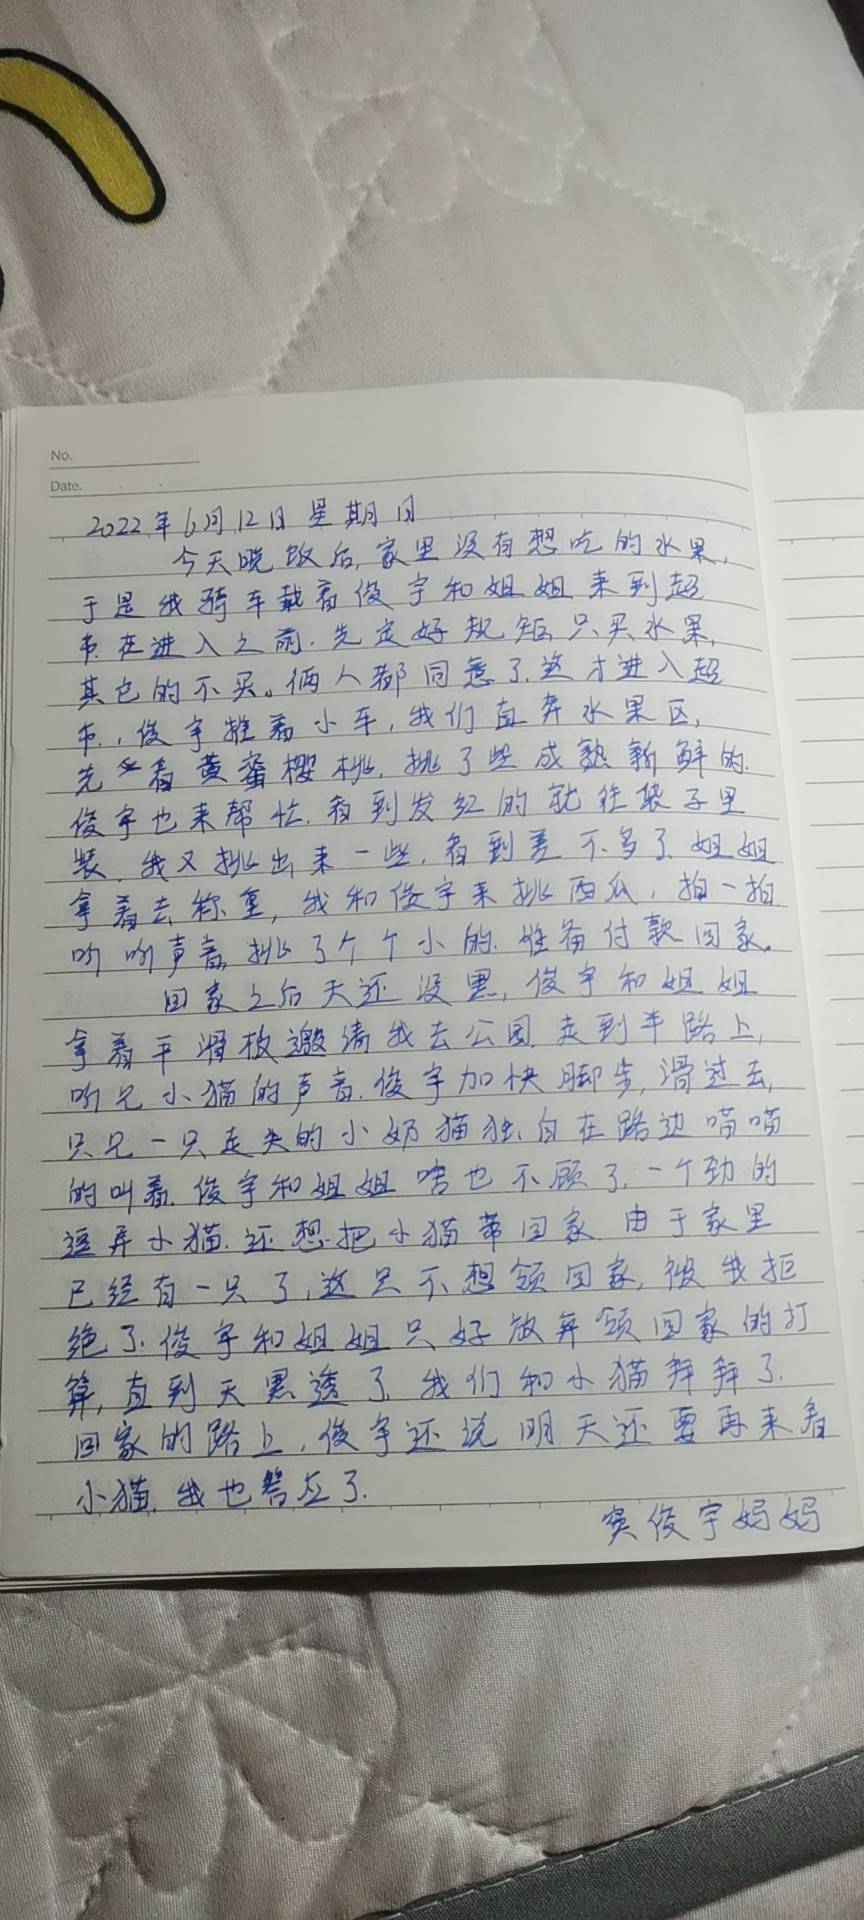 No.
Date.
2022年6月12日 星期日
今天晚饭后,家里没有想吃的水果,
于是我骑车载着俊宇和姐姐来到超
市.在进入之前.先定好规矩,只买水果,
其它的不买。俩人都同意了.这才进入超
市.,俊宇推着小车,我们直奔水果区,
先看黄蜜樱桃,挑了些成熟新鲜的.
俊宇也来帮忙.看到发红的就往袋子里
装.我又挑出来一些,看到差不多了,姐姐
拿着去称重,我和俊宇来挑西瓜,拍一拍
听听声音,挑了个个小的.准备付款回家。
回家之后天还没黑,俊宇和姐姐
拿着平滑板邀请我去公园.走到半路上,
听见小猫的声音.俊宇加快脚步,滑过去,
只见一只走失的小奶猫独自在路边喵喵
的叫着.俊宇和姐姐啥也不顾了.一个劲的
逗弄小猫.还想把小猫带回家.由于家里
已经有一只了,这只不想领回家,被我拒
绝了.俊宇和姐姐只好放弃领回家的打
算,直到天黑透了,我们和小猫拜拜了.
回家的路上,俊宇还说明天还要再来看
小猫.我也答应了.
窦俊宇妈妈